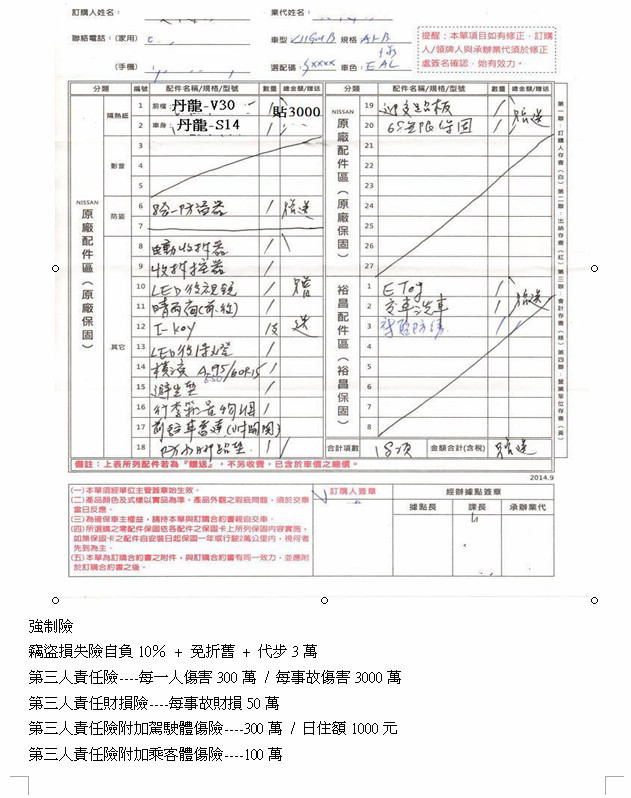 訂購人姓名：
業代姓名：
聯絡電話：(家用)
車型
規格
提醒：本單項目如有修正，訂購人/領牌人與承辦業代須於修正處簽名確認，始有效力。
(手機)
選配碼：
車色：EAL
分類 編號 配件名稱/規格/型號 數量 總金額/贈送
分類 配件名稱/規格/型號 數量 總金額/贈送
NISSAN 原廠配件區（原廠保固）
隔熱紙
1 前檔：丹龍-V30 1 貼3000
2 車身：丹龍-S14 1
影音
3
4
5
防盜
6 防盜器 1 贈送
7
其它
8 電動收折器 1
9 收折控器 1
10 LED後視鏡 1 贈
11 晴雨窗(前後) 1
12 I-key 1支 送
13 LED 1
14 橫濱 195/60R15
15 1
16 行李箱置物網 1
17 前註車雷達(附開關) 1
18 防水腳踏墊 1
NISSAN 原廠配件區（原廠保固）
19 迎賓踏板 1 贈送
20 保固 1
21
22
23
24
25
26
27
裕昌配件區（裕昌保固）
1 ETag 1
2 交車洗車 1 贈送
3
4
5
6
7
8
合計項數 18項 金額合計(含稅) 贈送
第一聯：訂購人存查(白)第二聯：出納存查(紅)第三聯：會計存查(綠)第四聯：營業單位存查(黃)
備註：上表所列配件若為『贈送』，不另收費，已含於車價之總價。
2014.9
(一)本單須經單位主管簽章始生效。
(二)產品顏色及式樣以實品為準。產品外觀之瑕疵問題，須於交車當日反應。
(三)為確保車主權益，請持本單與訂購合約書親自交車。
(四)所選購之零配件保固依各配件之保固卡上所列保固內容實施，如無保固卡之配件自安裝日起保固一年或行駛2萬公里內，視何者先到為主。
(五)本單為訂購合約書之附件，與訂購合約書有同一效力，並應附於訂購合約書之後。
訂購人簽章
經辦據點簽章
據點長 課長 承辦業代
強制險
竊盜損失險自負 10% + 免折舊 + 代步 3 萬
第三人責任險----每一人傷害 300 萬 / 每事故傷害 3000 萬
第三人責任財損險----每事故財損 50 萬
第三人責任險附加駕駛體傷險----300 萬 / 日住額 1000 元
第三人責任險附加乘客體傷險----100 萬